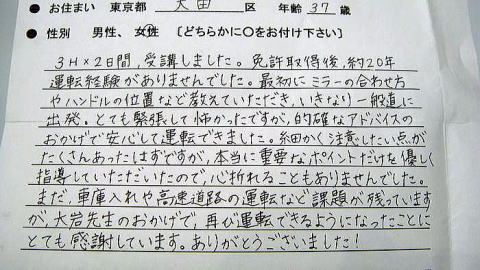 ● お住まい 東京都 大田 区 年齢 37 歳
● 性別 男性、女性 [どちらかに○をお付け下さい]
3H×2日間、受講しました。免許取得後、約20年
運転経験がありませんでした。最初にミラーの合わせ方
やハンドルの位置など教えていただき、いきなり一般道に
出発。とても緊張して怖かったですが、的確なアドバイスの
おかげで安心して運転できました。細かく注意したい点が
たくさんあったはずですが、本当に重要なポイントだけを優しく
指導していただいたので、心折れることもありませんでした。
まだ、車庫入れや高速道路の運転など課題が残っています
が、大岩先生のおかげで、再び運転できるようになったことに
とても感謝しています。ありがとうございました!